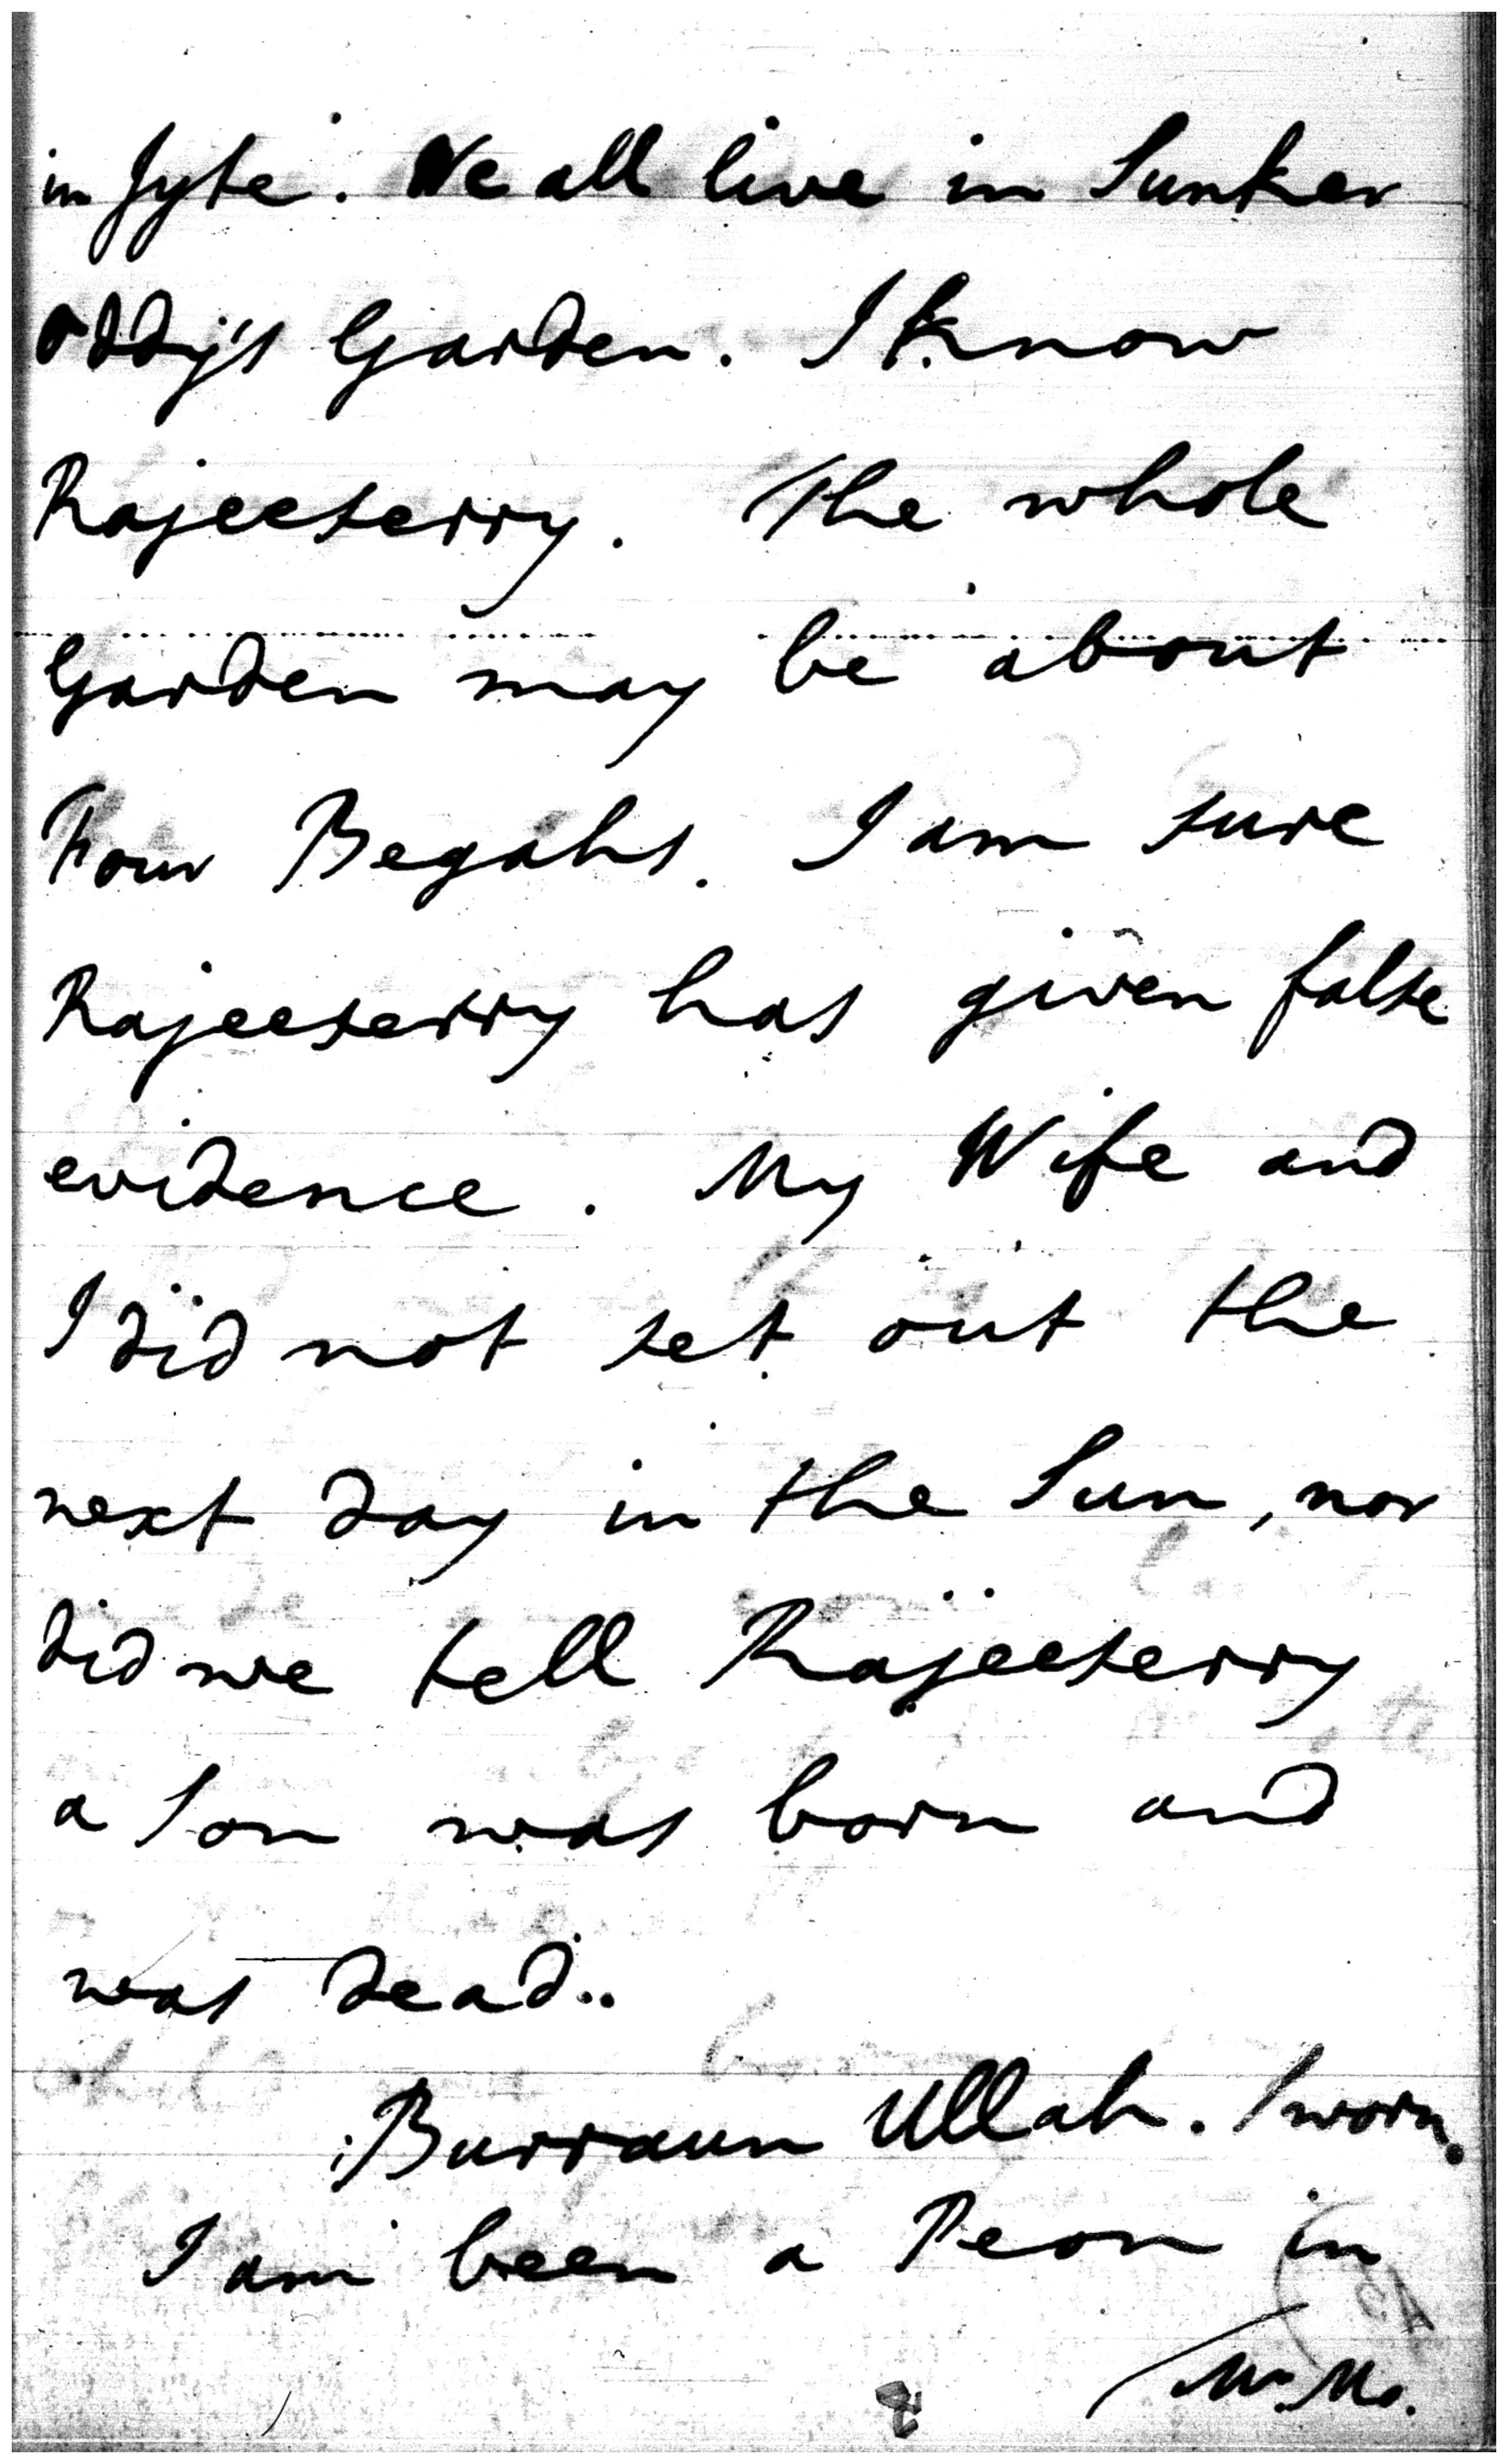 in Jyte. We all live in Sunker
Oddy's Garden. I know
Rajeeserry. The whole
Garden may be about
Four Begahs. I am sure
Rajeeserry has given false
evidence. My Wife and
I did not set out the
next day in the Sun, nor
did we tell Rajeeserry
a Son was born and
was dead..
Burraun Ullah. Sworn.
I am been a Peon in
Mr. Mo.